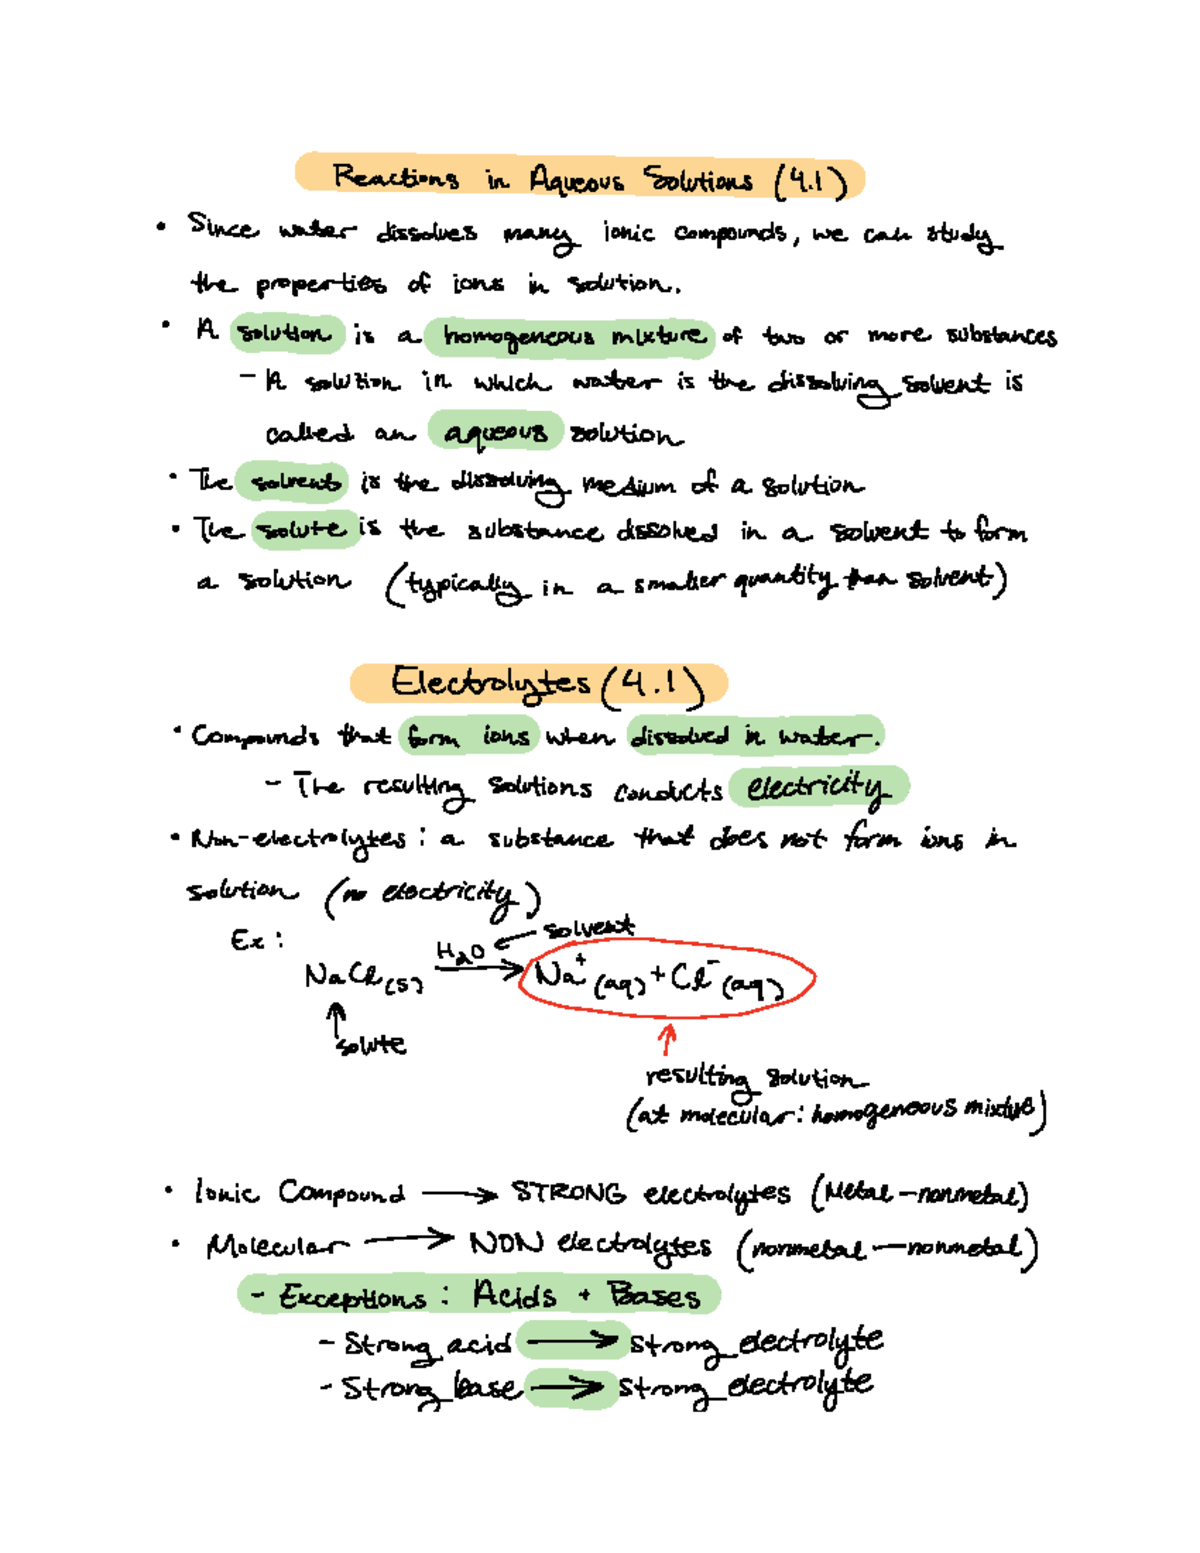 Reactions in Aqueous Solutions (4.1)
• Since water dissolves many ionic compounds, we can study
the properties of ions in solution.
• A solution is a homogeneous mixture of two or more substances
- A solution in which water is the dissolving solvent is
called an aqueous solution
• The solvent is the dissolving medium of a solution
• The solute is the substance dissolved in a solvent to form
a solution (typically in a smaller quantity than solvent)
Electrolytes (4.1)
• Compounds that form ions when dissolved in water.
- The resulting solutions conducts electricity
• Non-electrolytes: a substance that does not form ions in
solution (no electricity)
Ex:
H₂O ← solvent
NaCl(s) → Na⁺(aq) + Cl⁻(aq)
↑ solute
↑
resulting solution
(at molecular: homogeneous mixture)
• Ionic Compound → STRONG electrolytes (Metal-nonmetal)
• Molecular → NON electrolytes (nonmetal—nonmetal)
- Exceptions: Acids + Bases
- Strong acid → strong electrolyte
- Strong base → strong electrolyte